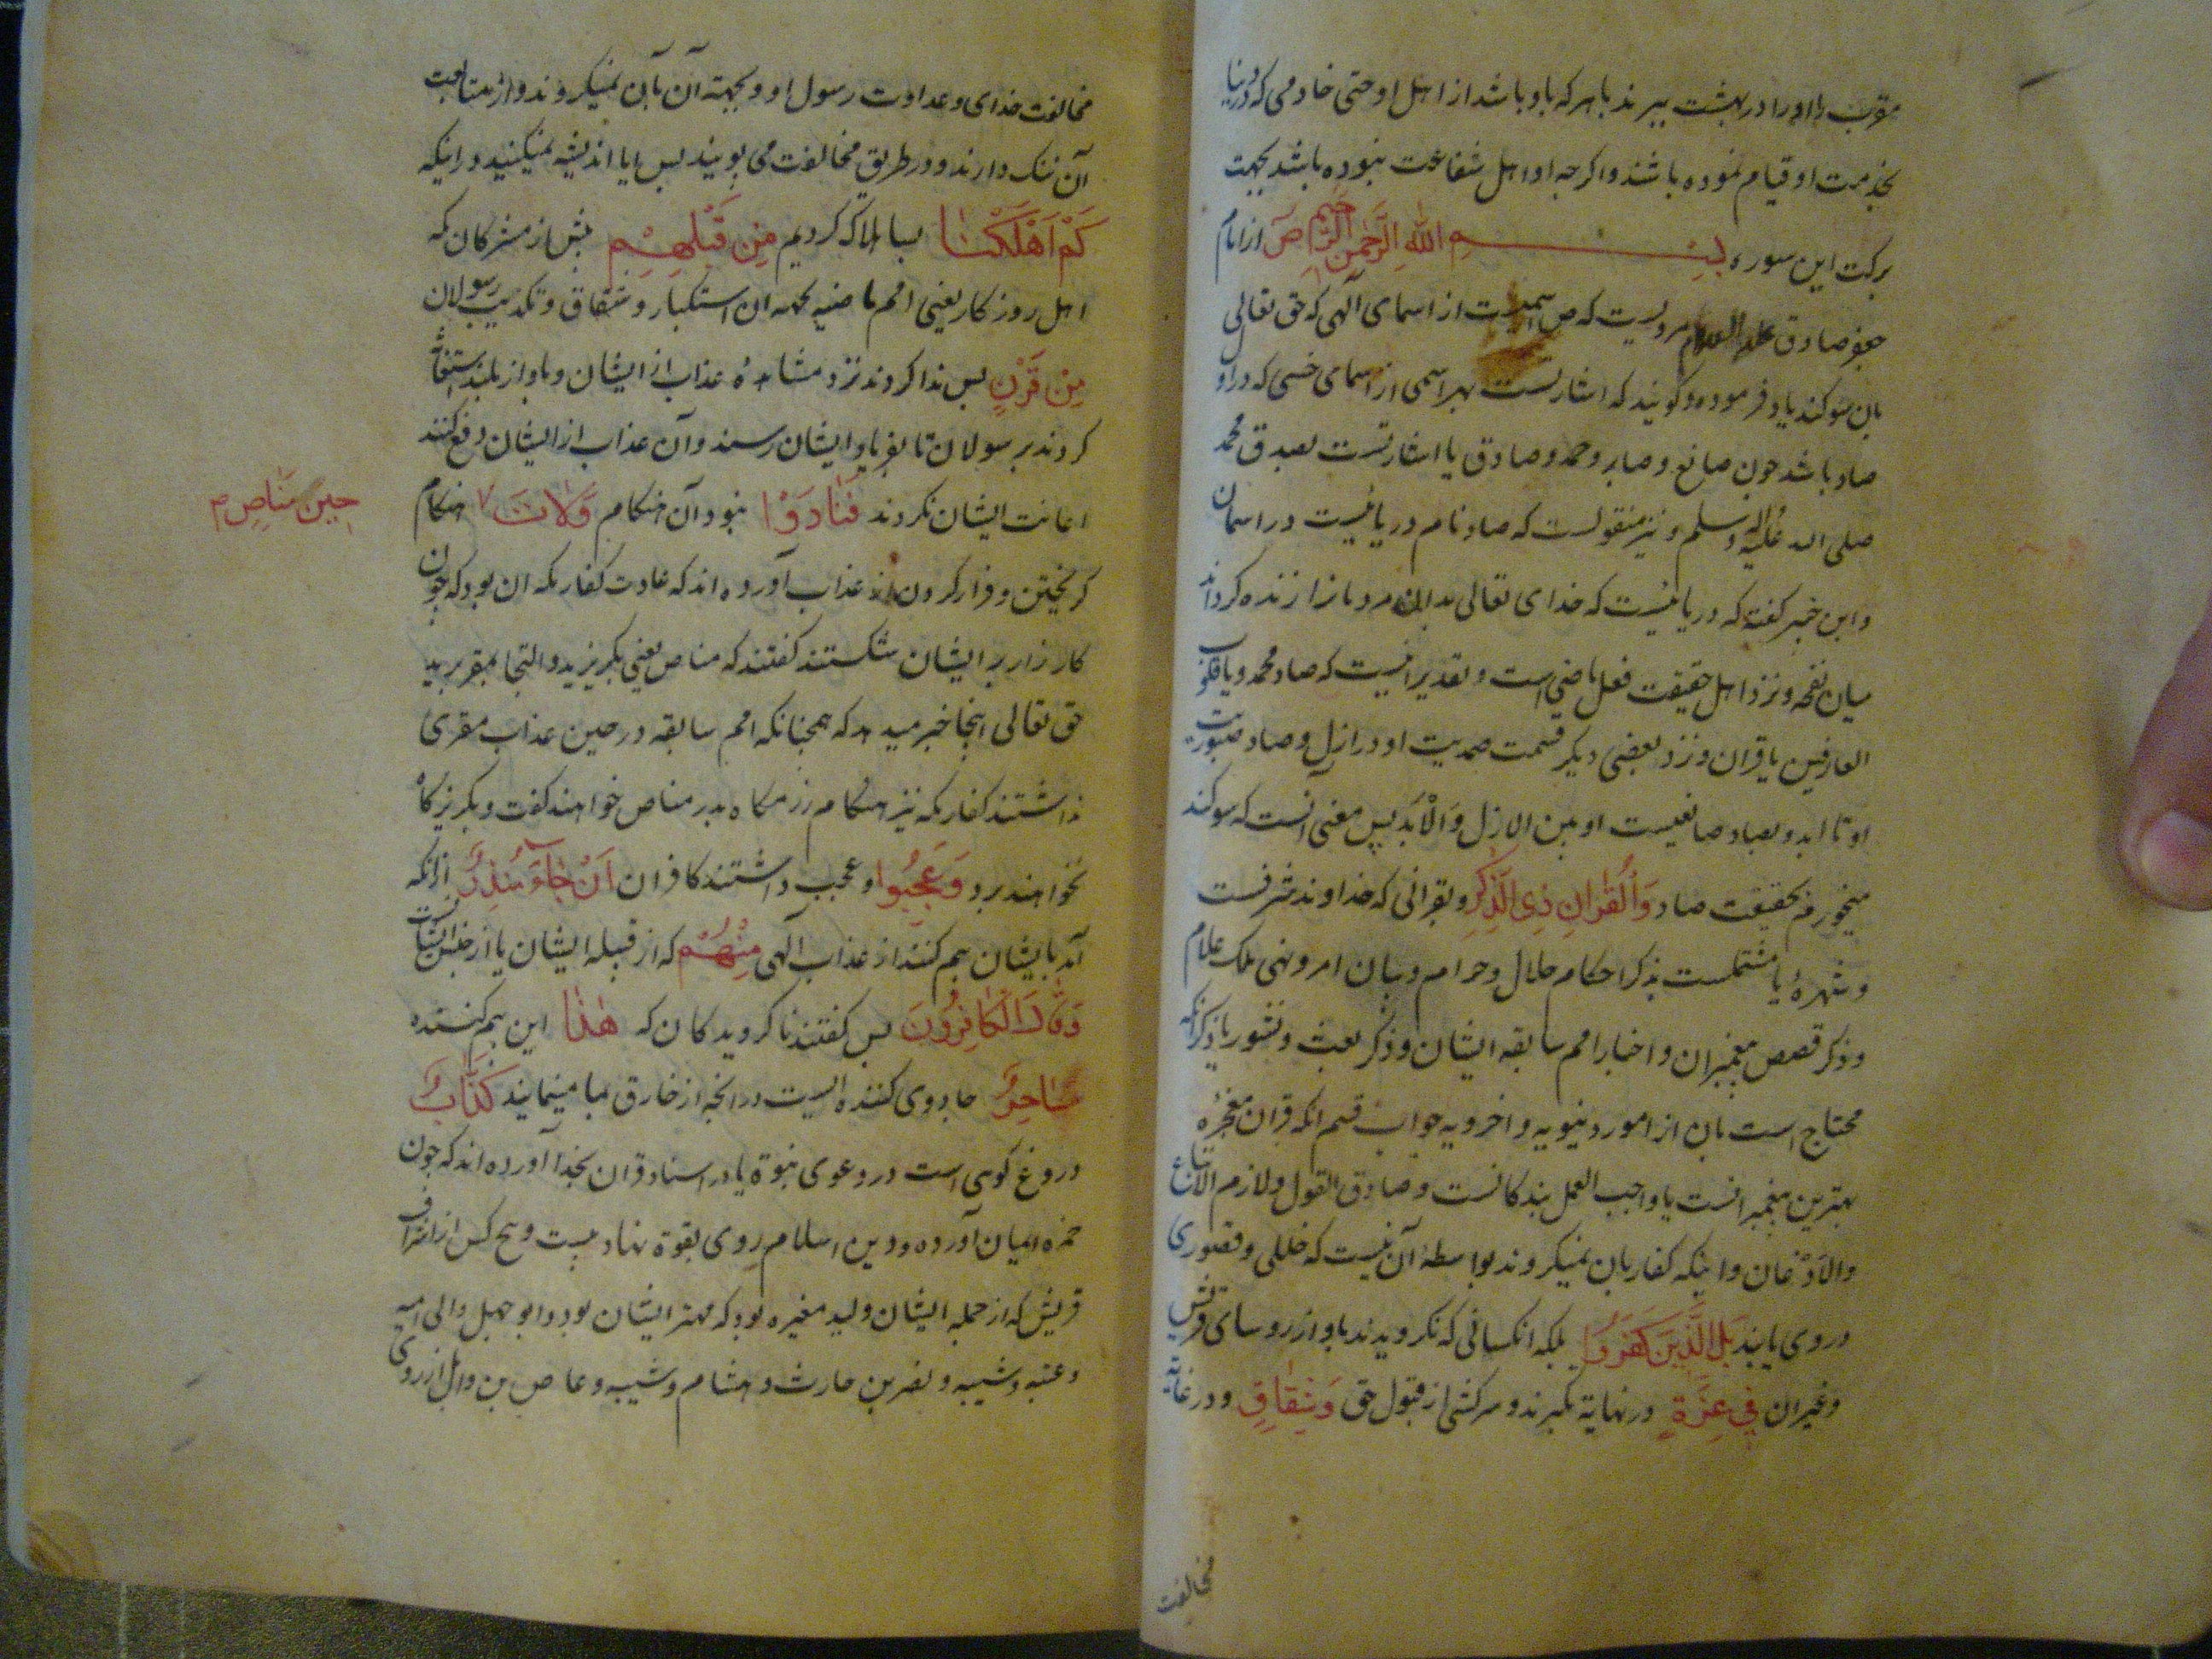 مقرب را اورا در بهشت ببرند با هر که با و باشد از اهل او حتی خادمی که در دنیا
بخدمت او قیام نموده باشد و اکرچه او اهل شفاعت نبوده باشد بجهت
برکت این سوره بِسْمِ اللهِ الرَّحْمنِ الرَّحِيمِ صٓ از امام
جعفر صادق علیه السلام مرویست که ص اسمیست از اسمای الهی که حق تعالی
بان سوکند یاد فرموده و کویند که اشارتست بهر اسمی از اسمای حسنی که در او
صاد باشد چون صانع و صابر و صمد و صادق یا اشارتست بصدق محمد
صلی الله علیه وآله وسلم و نیز منقولست که صاد نام دریائیست در اسمان
و ابن خبیر کفته که دریائیست که خدای تعالی بدان مردمانرا زنده کرداند
میان نفخه و نزد اهل حقیقت فعل ماضی است و تقدیر انیست که صاد محمد ویا قلوب
العارفین یا قران و نزد بعضی دیکر قسمت صمدیت او در ازل و صاد صبوریت
او تا ابد و بصاد صانعیست او بین الازل وَالْاَبَد پس معنی انست که سوکند
میخورم بحقیقت صاد وَالْقُرْانِ ذِی الذِّکْرِ و بقرانی که خداوند شرفست
و شهرهٔ یا مشتملست بذکر احکام حلال و حرام و بیان امر و نهی ملک علام
و ذکر قصص پیغمبران و اخبار امم سابقه ایشان و ذکر بعث و نشور یا ذکر آنکه
محتاج است بان از امور دنیویه و اخرویه جواب قسم انکه قران معجزه
بهترین پیغمبرانست یا واجب العمل بندکانست و صادق القول و لازم الاتباع
والاذعان و اینکه کفار بان نمیکروند بواسطهٔ آن نیست که خللی و قصوری
در وی یابند بَلِ الَّذِينَ كَفَرُوا بلکه انکسانی که نکرویدند باو از روسای قریش
و غیران فِي عِزَّةٍ در نهایة تکبرند و سرکشی از قبول حق وَشِقَاقٍ و در غایة
مخالفت
مخالفت خدای و عداوت رسول او و بجهته آن بآن نمیکروند و از متابعت
آن ننک دارند و در طریق مخالفت می پویند پس ایا اندیشه نمیکنید در اینکه
كَمْ اَهْلَكْنَا بسا هلاک کردیم مِنْ قَبْلِهِمْ پیش از مشرکان مکه
اهل روزکار یعنی امم ماضیه بجهه ان استکبار و شقاق و تکذیب رسولان
مِنْ قَرْنٍ پس ندا کردند نزد مشاهدهٔ عذاب از ایشان و باواز بلند استغاثه
کردند برسولان تا بفریاد ایشان رسند و آن عذاب از ایشان دفع کنند
اعانت ایشان نکردند فَنَادَوْا نبود آن هنکام وَلَاتَ هنکام
حِينَ مَنَاصٍ م
کریختن و فرار کردن از عذاب آورده اند که عادت کفار مکه ان بود که چون
کارزار بر ایشان شکستند کفتند که مناص یعنی بکریزید و التجا بمفر برید
حق تعالی اینجا خبر میدهد که همچنانکه امم سابقه در حین عذاب مفری
نداشتند کفار مکه نیز هنکام رزمکاه بدر مناص خواهند کفت و بکریزکاه
نخواهند برد وَعَجِبُوا و عجب داشتند کافران اَنْ جَآءَهُمْ مُنْذِرٌ از انکه
آمد بایشان بیم کننده از عذاب الهی مِنْهُمْ که از قبیله ایشان یا از جنس ایشان
وَقَالَ الْكَافِرُونَ پس کفتند ناکرویدکان که هٰذَا این بیم کننده
سَاحِرٌ جادوی کننده ایست در انچه از خارق بما مینماید كَذَّابٌ
دروغ کوئی است در دعوی نبوة یا در اسناد قران بخدا آورده اند که چون
حمزه ایمان آورد و دین اسلام روی بقوة نهاد بیست و پنج کس از اشراف
قریش که از جمله ایشان ولید مغیره بود که مهتر ایشان بود و ابو جهل و ابی امیه
و عتبه و شیبه و نضر بن حارث و هشام و شیبه و عاص بن وائل از روی